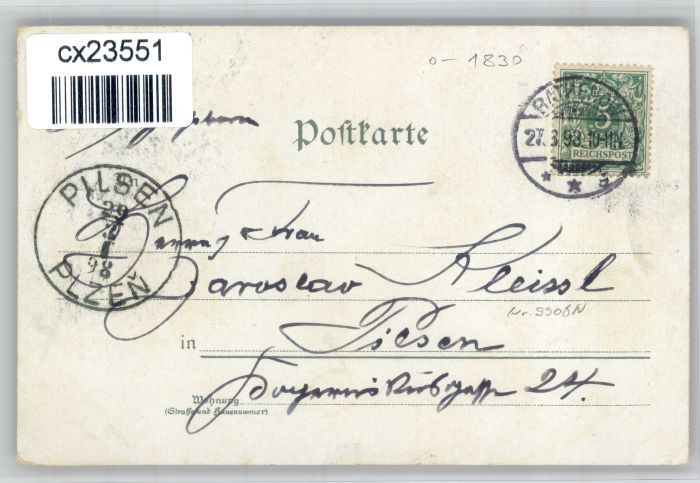 cx23551
0-1830
Postkarte
27.3.98.10-11N.
5
REICHSPOST
PILSEN
98
PLZEŇ
Frau
Jaroslav Kleissl
Nr. 9908N
in Pilsen
24.
Wohnung
(Straße und Hausnummer)